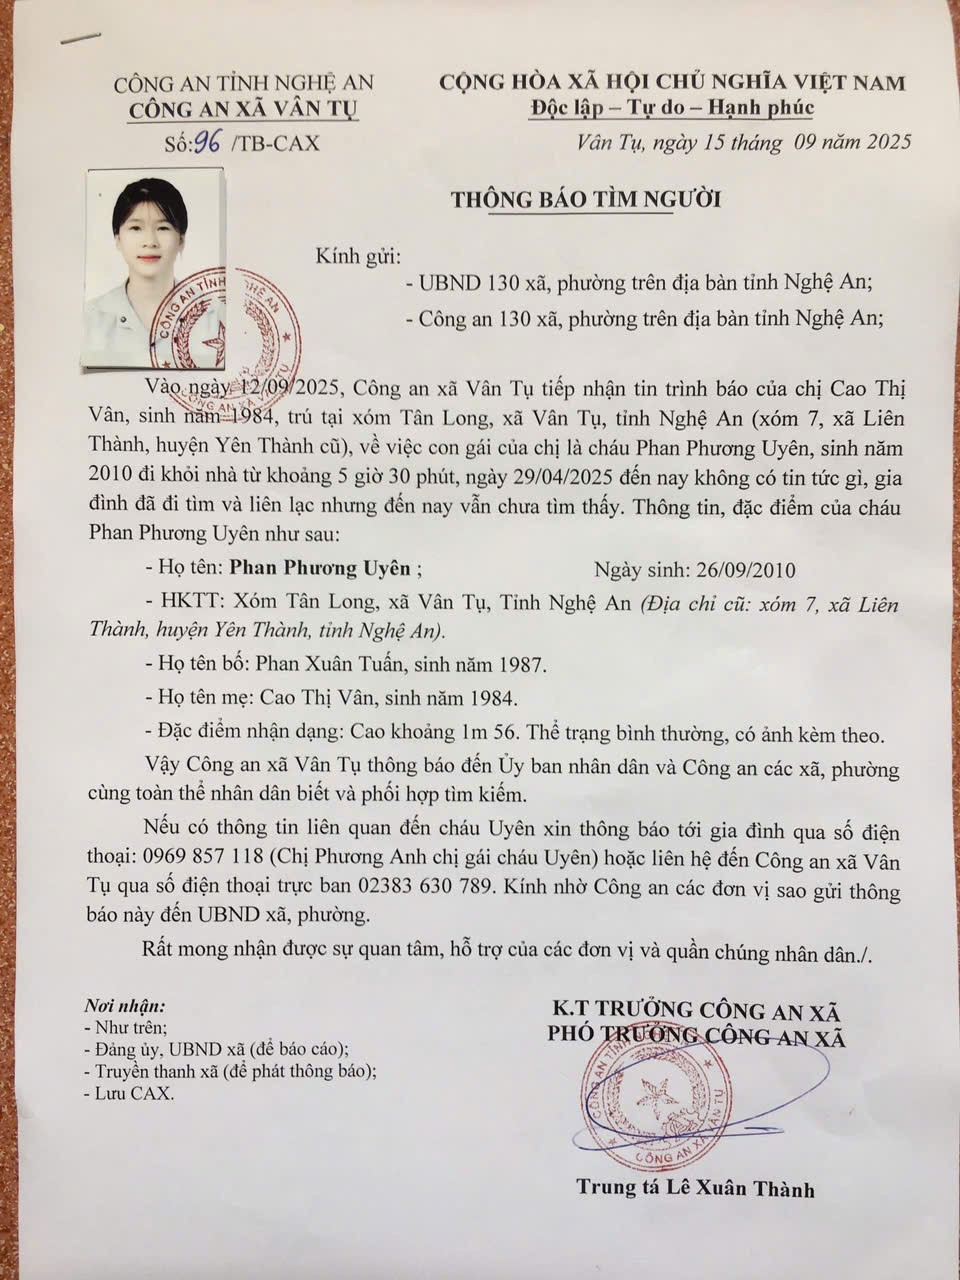 CÔNG AN TỈNH NGHỆ AN
CÔNG AN XÃ VÂN TỤ
Số:96 /TB-CAX
CỘNG HÒA XÃ HỘI CHỦ NGHĨA VIỆT NAM
Độc lập – Tự do – Hạnh phúc
Vân Tụ, ngày 15 tháng 09 năm 2025
THÔNG BÁO TÌM NGƯỜI
Kính gửi:
- UBND 130 xã, phường trên địa bàn tỉnh Nghệ An;
- Công an 130 xã, phường trên địa bàn tỉnh Nghệ An;
CÔNG AN TỈNH NGHỆ AN
CÔNG AN XÃ VÂN TỤ
Vào ngày 12/09/2025, Công an xã Vân Tụ tiếp nhận tin trình báo của chị Cao Thị
Vân, sinh năm 1984, trú tại xóm Tân Long, xã Vân Tụ, tỉnh Nghệ An (xóm 7, xã Liên
Thành, huyện Yên Thành cũ), về việc con gái của chị là cháu Phan Phương Uyên, sinh năm
2010 đi khỏi nhà từ khoảng 5 giờ 30 phút, ngày 29/04/2025 đến nay không có tin tức gì, gia
đình đã đi tìm và liên lạc nhưng đến nay vẫn chưa tìm thấy. Thông tin, đặc điểm của cháu
Phan Phương Uyên như sau:
- Họ tên: Phan Phương Uyên ; Ngày sinh: 26/09/2010
- HKTT: Xóm Tân Long, xã Vân Tụ, Tỉnh Nghệ An (Địa chỉ cũ: xóm 7, xã Liên
Thành, huyện Yên Thành, tỉnh Nghệ An).
- Họ tên bố: Phan Xuân Tuấn, sinh năm 1987.
- Họ tên mẹ: Cao Thị Vân, sinh năm 1984.
- Đặc điểm nhận dạng: Cao khoảng 1m 56. Thể trạng bình thường, có ảnh kèm theo.
Vậy Công an xã Vân Tụ thông báo đến Ủy ban nhân dân và Công an các xã, phường
cùng toàn thể nhân dân biết và phối hợp tìm kiếm.
Nếu có thông tin liên quan đến cháu Uyên xin thông báo tới gia đình qua số điện
thoại: 0969 857 118 (Chị Phương Anh chị gái cháu Uyên) hoặc liên hệ đến Công an xã Vân
Tụ qua số điện thoại trực ban 02383 630 789. Kính nhờ Công an các đơn vị sao gửi thông
báo này đến UBND xã, phường.
Rất mong nhận được sự quan tâm, hỗ trợ của các đơn vị và quần chúng nhân dân./.
Nơi nhận:
- Như trên;
- Đảng ủy, UBND xã (để báo cáo);
- Truyền thanh xã (để phát thông báo);
- Lưu CAX.
K.T TRƯỞNG CÔNG AN XÃ
PHÓ TRƯỞNG CÔNG AN XÃ
CÔNG AN TỈNH
CÔNG AN XÃ VÂN TỤ
Trung tá Lê Xuân Thành